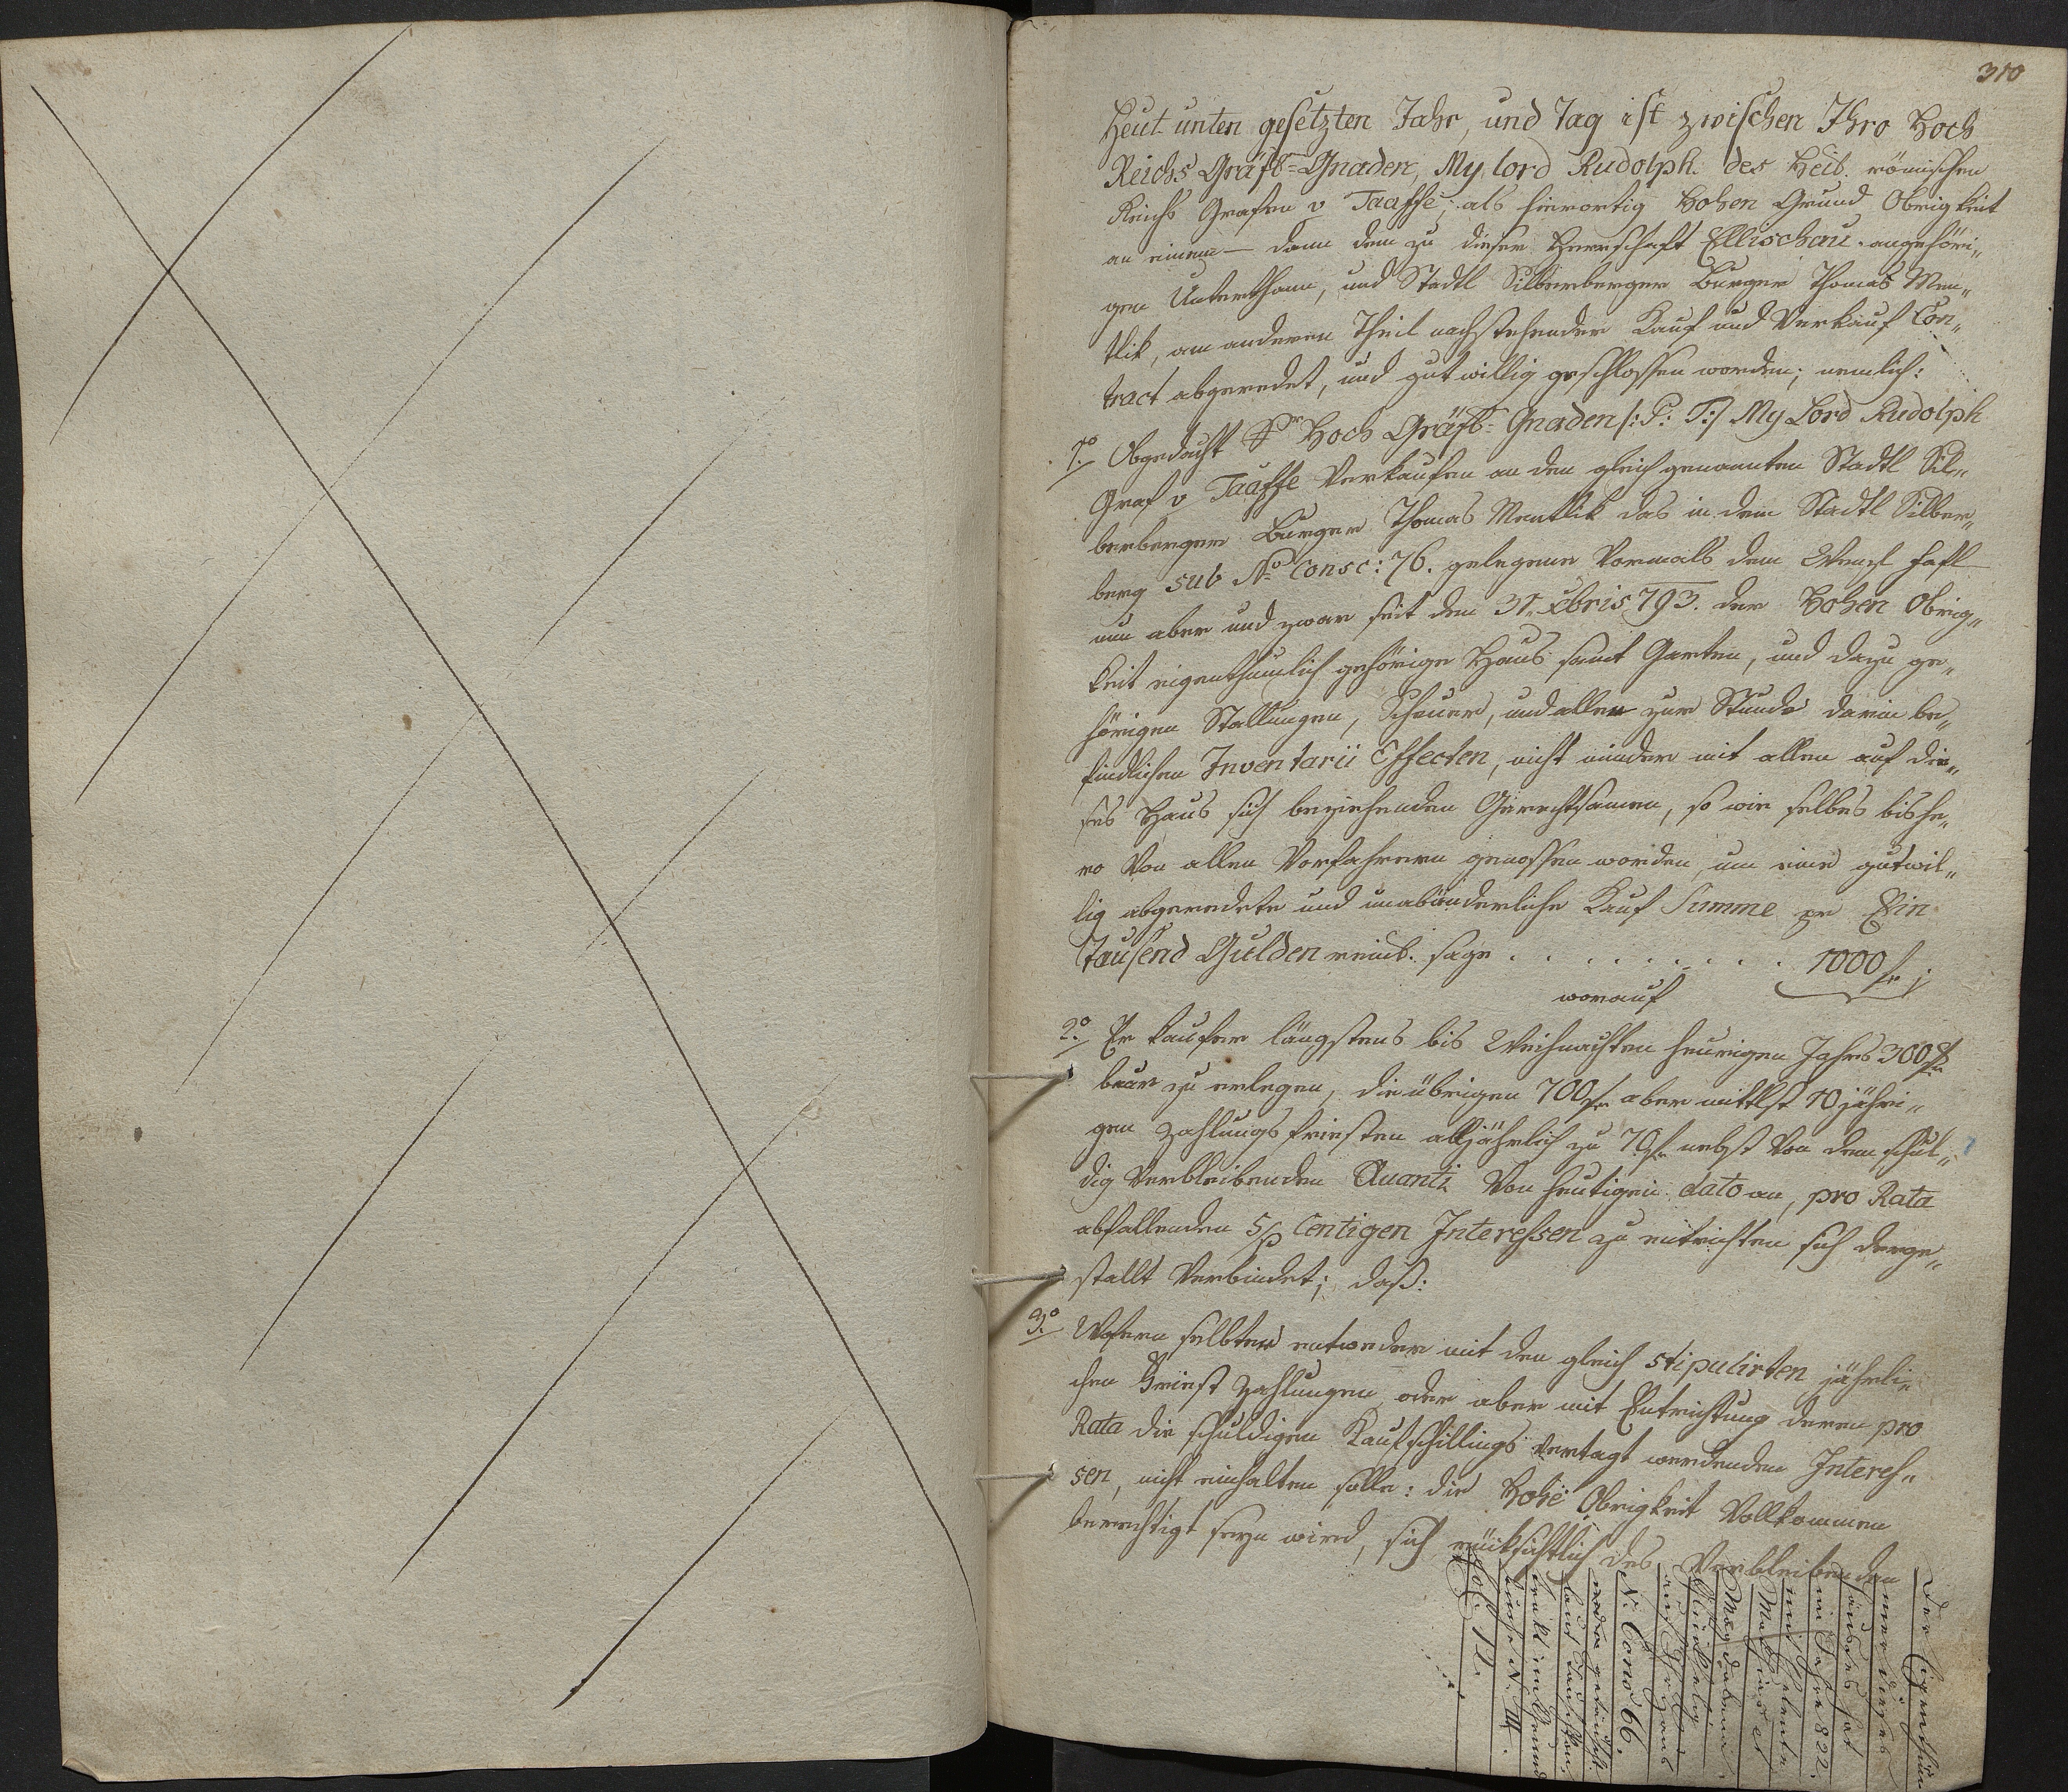 310
Heut unten gesetzten Jahr, und Tag ist zwischen Ihro Hoch
Reichs Gräfl=Gnaden, My lord Rudolph des Heil. römischen
Reichs Grafen v Taaffe, als hierortig Hohen Grund Obrigkeit
an einem — dann dem zu dieser Herrschaft Ellischau angehöri„
gen Unterthann, und Stadtl Silberberger Burger Thomas Men„
tlik, am anderen Theil nachstehender Kauf und Verkauf Con„
tract abgeredet, und gutwillig geschlossen worden; nemlich:
1o Obgedacht Sr Hoch Gräfl= Gnaden /: P: T:/ My Lord Rudolph
Graf v Taaffe Verkaufen an den gleich genannten Stadtl Sil„
berberger Burger Thomas Mentlik das in dem Stadtl Silber„
berg sub No Consc: 76. gelegene Vormals dem Wenzl
nun aber und zwar seit dem 31. Xbris 793. der Hohen Obrig„
keit eigenthumlich gehörige Haus samt Garten, und dazu ge„
hörigen Stallungen, Scheuer, und allen zur Stunde darin be„
findlichen Inventarii Effecten, nicht minder mit allen auf die„
ses Haus sich beziehenden Gerechtsamen, so wie selbes bishe„
ro Von allen Vorfahrern genossen worden, um eine gutwil„
lig abgeredete und unabänderliche Kauf Summe pr Ein
Tausend Gulden reinl. sage . . . . . . . . . 1000 f;
worauf
2o Er Kaufer längstens bis Weihnachten heurigen Jahrs 300 f
baar zu erlegen, die übrigen 700 f aber mittlst 10 jähri„
gen Zahlungsfristen alljährlich zu 70 f nebst Von dem schul„
dig Verbleibenden Quanti Von heutigen dato an, pro Rata
abfallenden 5 p Centigen Interessen zu entrichten sich derge„
stallt Verbindet; daß:
3o Wofern selbter entweder mit den gleich stipulirten jährli„
chen Friest Zahlungen, oder aber mit Entrichtung deren pro
Rata die schuldigen Kaufschillings Vertagt werdenden Interes„
sen, nicht einhalten solle: die Hohe Obrigkeit Vollkommen
berechtigt seyn wird, sich rücksichtlich des Verbleibenden
Der Eigenthü
mer dieses
Hauses hat
im Jahre 822
mit
Magdalena
auf Ihr Haus
N: Cons 66.
laut
N. III.
Fol: 12.